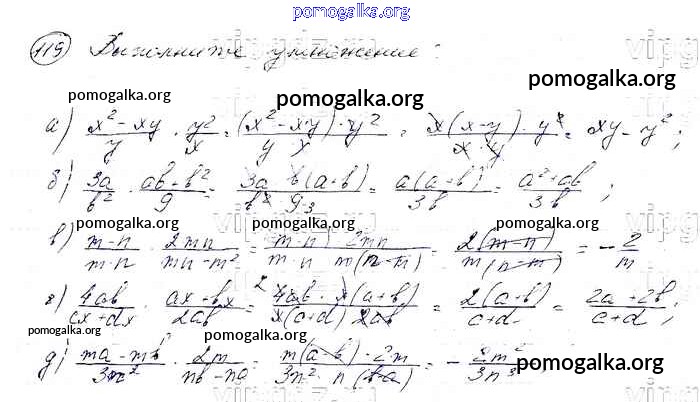 pomogalka.org
119) Выполните умножение:
pomogalka.org pomogalka.org pomogalka.org
а) (x² - xy)/y · y²/x = (x² - xy) · y²/(y x) = x(x - y) · y²/(x · y) = xy - y²;
б) 3a/b² · (ab + b²)/9 = 3a b(a + b)/(b² 9 · 3) = a(a + b)/3b = (a² + ab)/3b;
pomogalka.org pomogalka.org pomogalka.org
в) (m - n)/(m · n) · 2mn/(mn - m²) = (m - n) · 2mn/(m · n m(n - m)) = 2(m - n)/(m(n - m)) = - 2/m
г) 4ab/(cx + dx) · (ax + bx)/2ab = 2 4ab · x(a + b)/(x(c + d) 2ab) = 2(a + b)/(c + d) = (2a + 2b)/(c + d);
pomogalka.org pomogalka.org pomogalka.org
д) (ma - mb)/3n² · 2m/(nb - na) = m(a - b) · 2m/(3n² · n (b - a)) = - 2m²/3n³
pomogalka.org